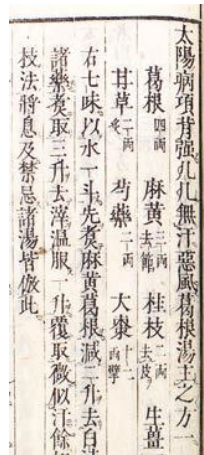 太陽病項背強几几無汗惡風葛根湯主之方一
葛根四兩 麻黃三兩去節 桂枝二兩去皮 生薑
甘草二兩炙 芍藥二兩 大棗十二擘
右七味以水一斗先煮麻黃葛根減二升去白
諸藥煮取三升去滓溫服一升覆取微似汗餘
技法將息及禁忌諸湯皆倣此